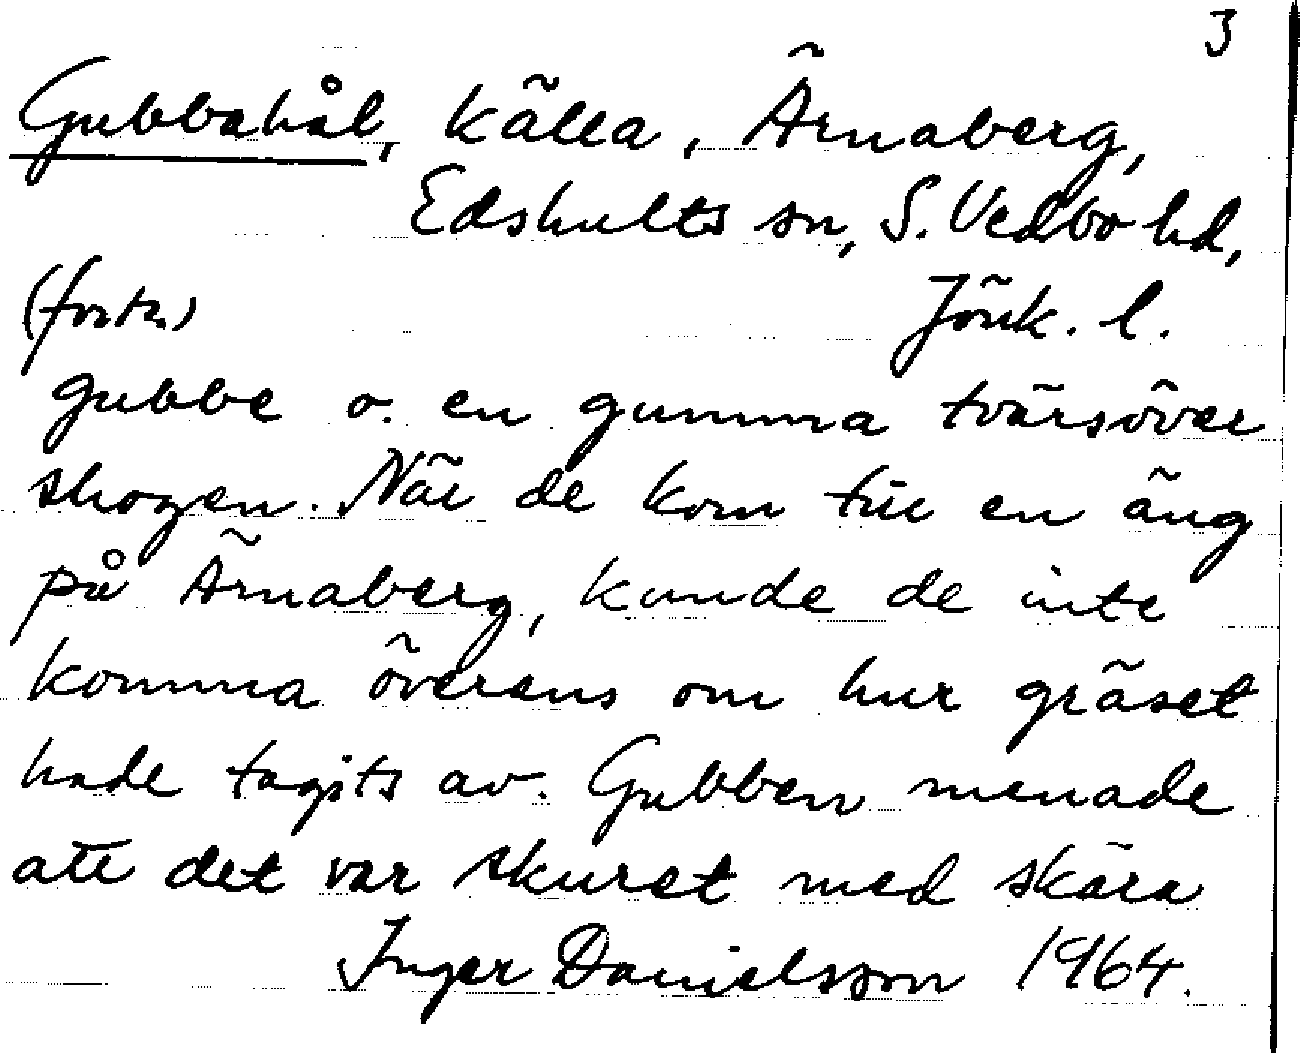 3
Gubbahål, källa, Ärnaberg,
Edshults sn, S. Vedbo hd,
(forts.) Jönk. l.
gubbe o. en gumma tvärsöver
skogen. När de kom till en äng
på Ärnaberg, kunde de inte
komma överens om hur gräset
hade tagits av. Gubben menade
att det var skuret med skära
Inger Danielsson 1964.